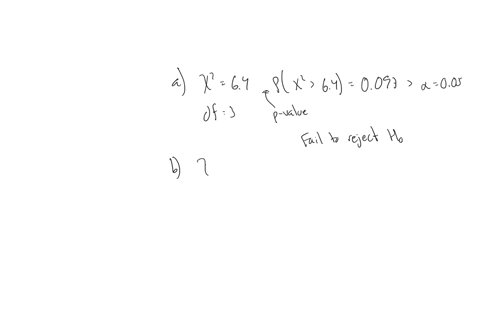 a) χ² = 6.4 P(χ² > 6.4) = 0.093 > α = 0.05
df = 3 p-value
Fail to reject H₀
b) ?